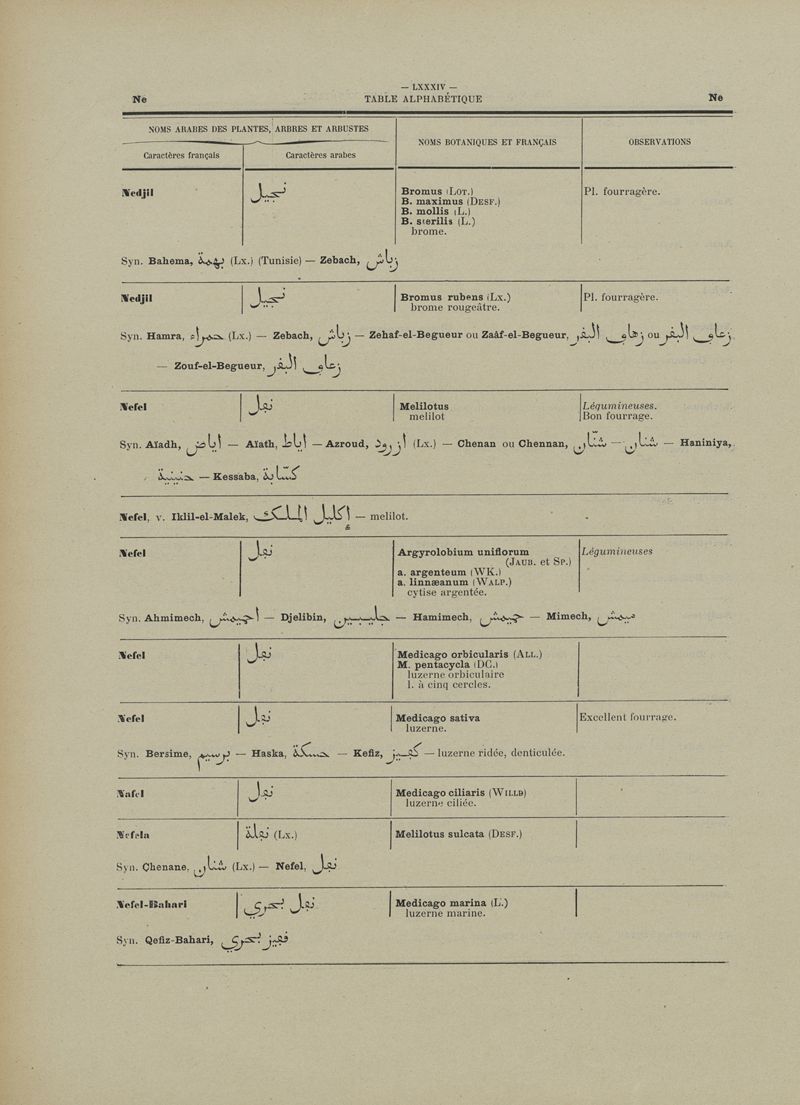 — LXXXIV —
Ne TABLE ALPHABÉTIQUE Ne
NOMS ARABES DES PLANTES, ARBRES ET ARBUSTES
NOMS BOTANIQUES ET FRANÇAIS OBSERVATIONS
Caractères français Caractères arabes
Nedjil نجيل Bromus (LOT.) Pl. fourragère.
B. maximus (DESF.)
B. mollis (L.)
B. sterilis (L.)
brome.
Syn. Bahema, بهمة (LX.) (Tunisie) — Zebach, زباش
Nedjil نجيل Bromus rubens (LX.) Pl. fourragère.
brome rougeâtre.
Syn. Hamra, حمراء (LX.) — Zebach, زباش — Zehaf-el-Begueur ou Zaâf-el-Begueur, ou
— Zouf-el-Begueur,
Nefel نفل Melilotus Légumineuses.
melilot Bon fourrage.
Syn. Aïadh, — Aïath, — Azroud, (LX.) — Chenan ou Chennan, شنان — شنّان — Haniniya,
حنينية — Kessaba, كسّابة
Nefel, v. Iklil-el-Malek, — melilot.
Nefel نفل Argyrolobium uniflorum Légumineuses
(JAUB. et SP.)
a. argenteum (WK.)
a. linnæanum (WALP.)
cytise argentée.
Syn. Ahmimech, — Djelibin, — Hamimech, — Mimech,
Nefel نفل Medicago orbicularis (ALL.)
M. pentacycla (DC.)
luzerne orbiculaire
l. à cinq cercles.
Nefel نفل Medicago sativa Excellent fourrage.
luzerne.
Syn. Bersime, برسيم — Haska, حسكة — Kefiz, كفيز — luzerne ridée, denticulée.
Nafel نفل Medicago ciliaris (WILLD)
luzerne ciliée.
Nefela نفلة (LX.) Melilotus sulcata (DESF.)
Syn. Chenane, شنان (LX.) — Nefel, نفل
Nefel-Bahari نفل بحري Medicago marina (L.)
luzerne marine.
Syn. Qefiz-Bahari, قفيز بحري